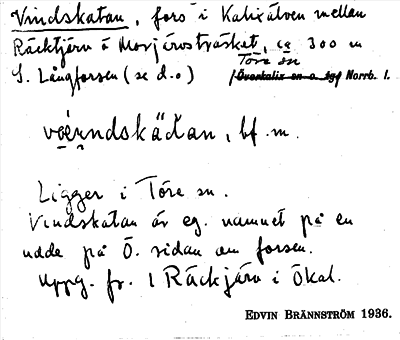 Vindskatan, fors i Kalixälven mellan
Räcktjärv o Morjärvsträsket, ca 300 m
S. Långforsen (se d.o)
Töre sn
Överkalix sn o. tg, Norrb. l.
bf. m.
Ligger i Töre sn.
Vindskatan är eg. namnet på en
udde på Ö. sidan om forsen.
Uppg. fr. 1 Räckjärv i Ökal.
EDVIN BRÄNNSTRÖM 1936.